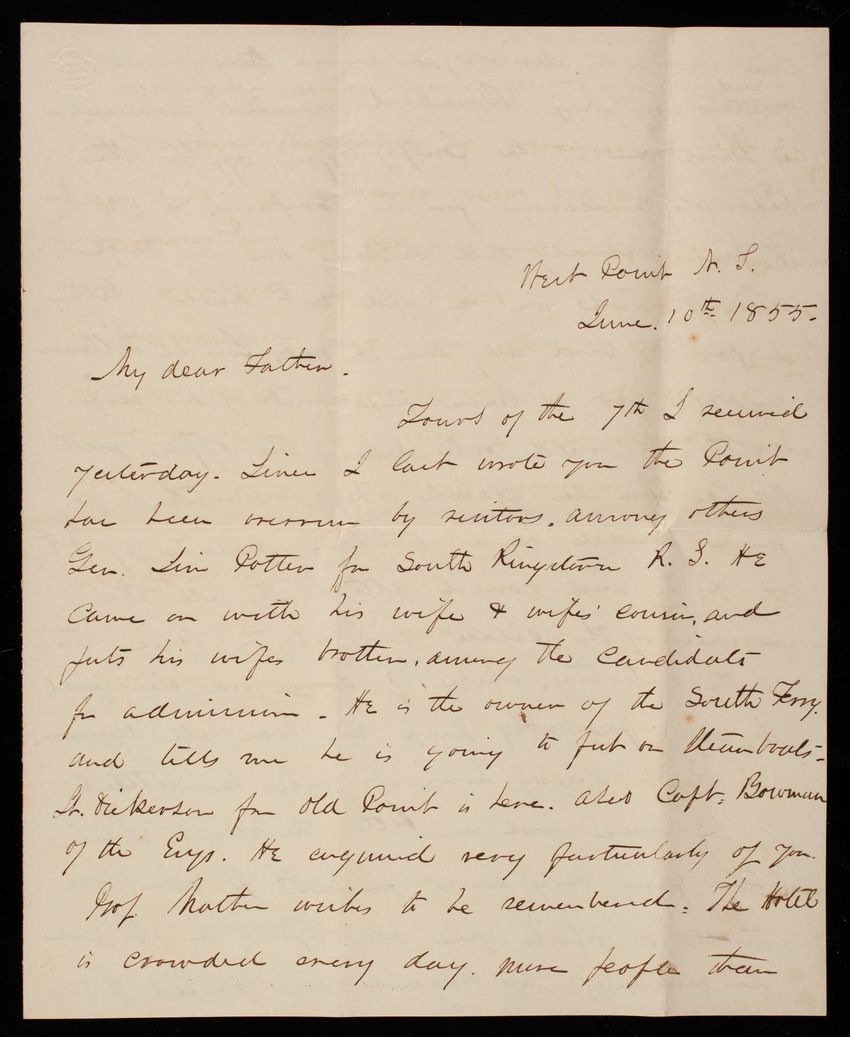 West Point N. Y.
June. 10th 1855.
My dear Father.
Yours of the 7th I received
yesterday. Since I last wrote you the Point
has been overrun by visitors, among others
Gen. Potter from South Kingstown R. I. He
came on with his wife & wifes' cousin, and
puts his wifes brother, among the candidates
for admission. He is the owner of the South Ferry.
and tells me he is going to put on steamboats.
Lt. Dickerson from Old Point is here. also Capt. Bowman
of the Engs. He enquired very particularly of you.
Prof. Mather wishes to be remembered. The Hotel
is crowded every day. more people than